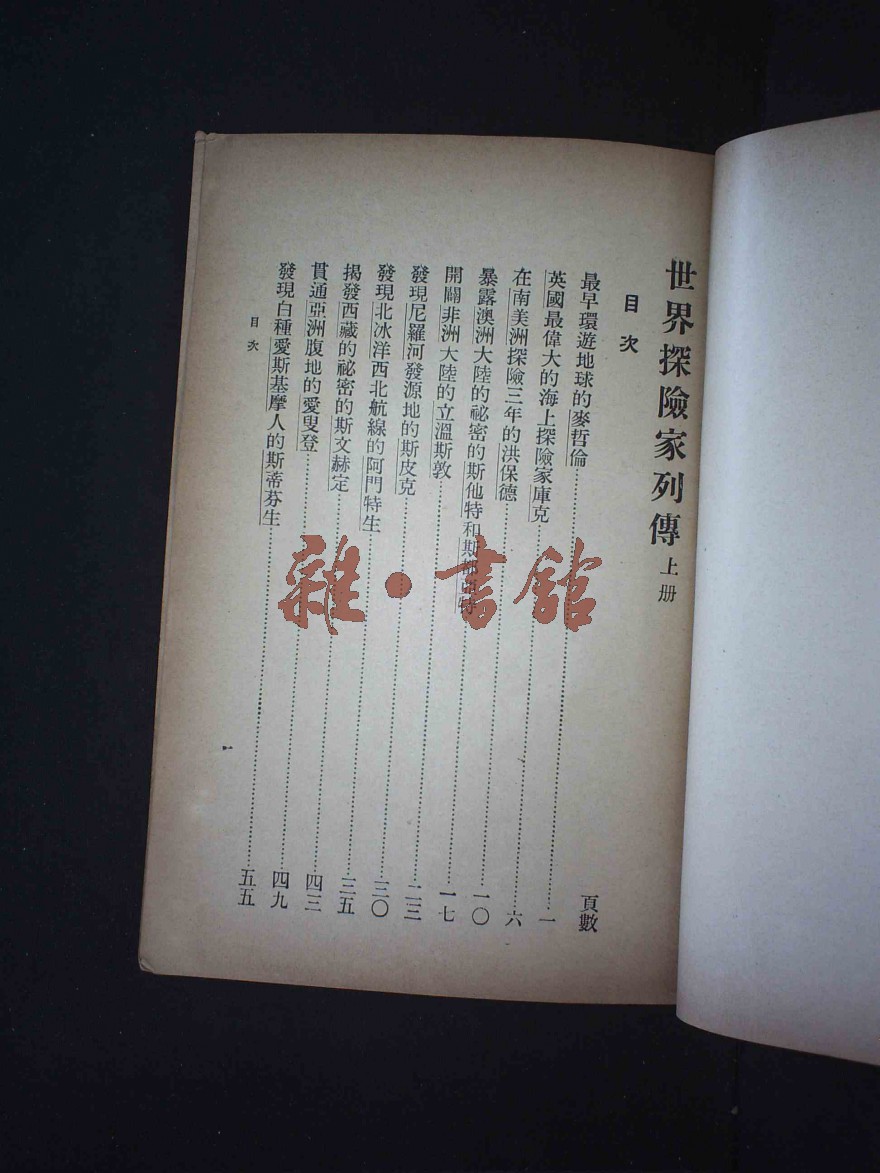 世界探險家列傳 上册
目次
頁數
最早環遊地球的麥哲倫……一
英國最偉大的海上探險家庫克……六
在南美洲探險三年的洪保德……一〇
暴露澳洲大陸的祕密的斯他特和斯……一七
開闢非洲大陸的立溫斯敦……二三
發現尼羅河發源地的斯皮克……三〇
發現北冰洋西北航線的阿門特生……三五
揭發西藏的祕密的斯文赫定……四三
貫通亞洲腹地的愛叟登……四九
發現白種愛斯基摩人的斯蒂芬生……五五
目次
一
雜·書館